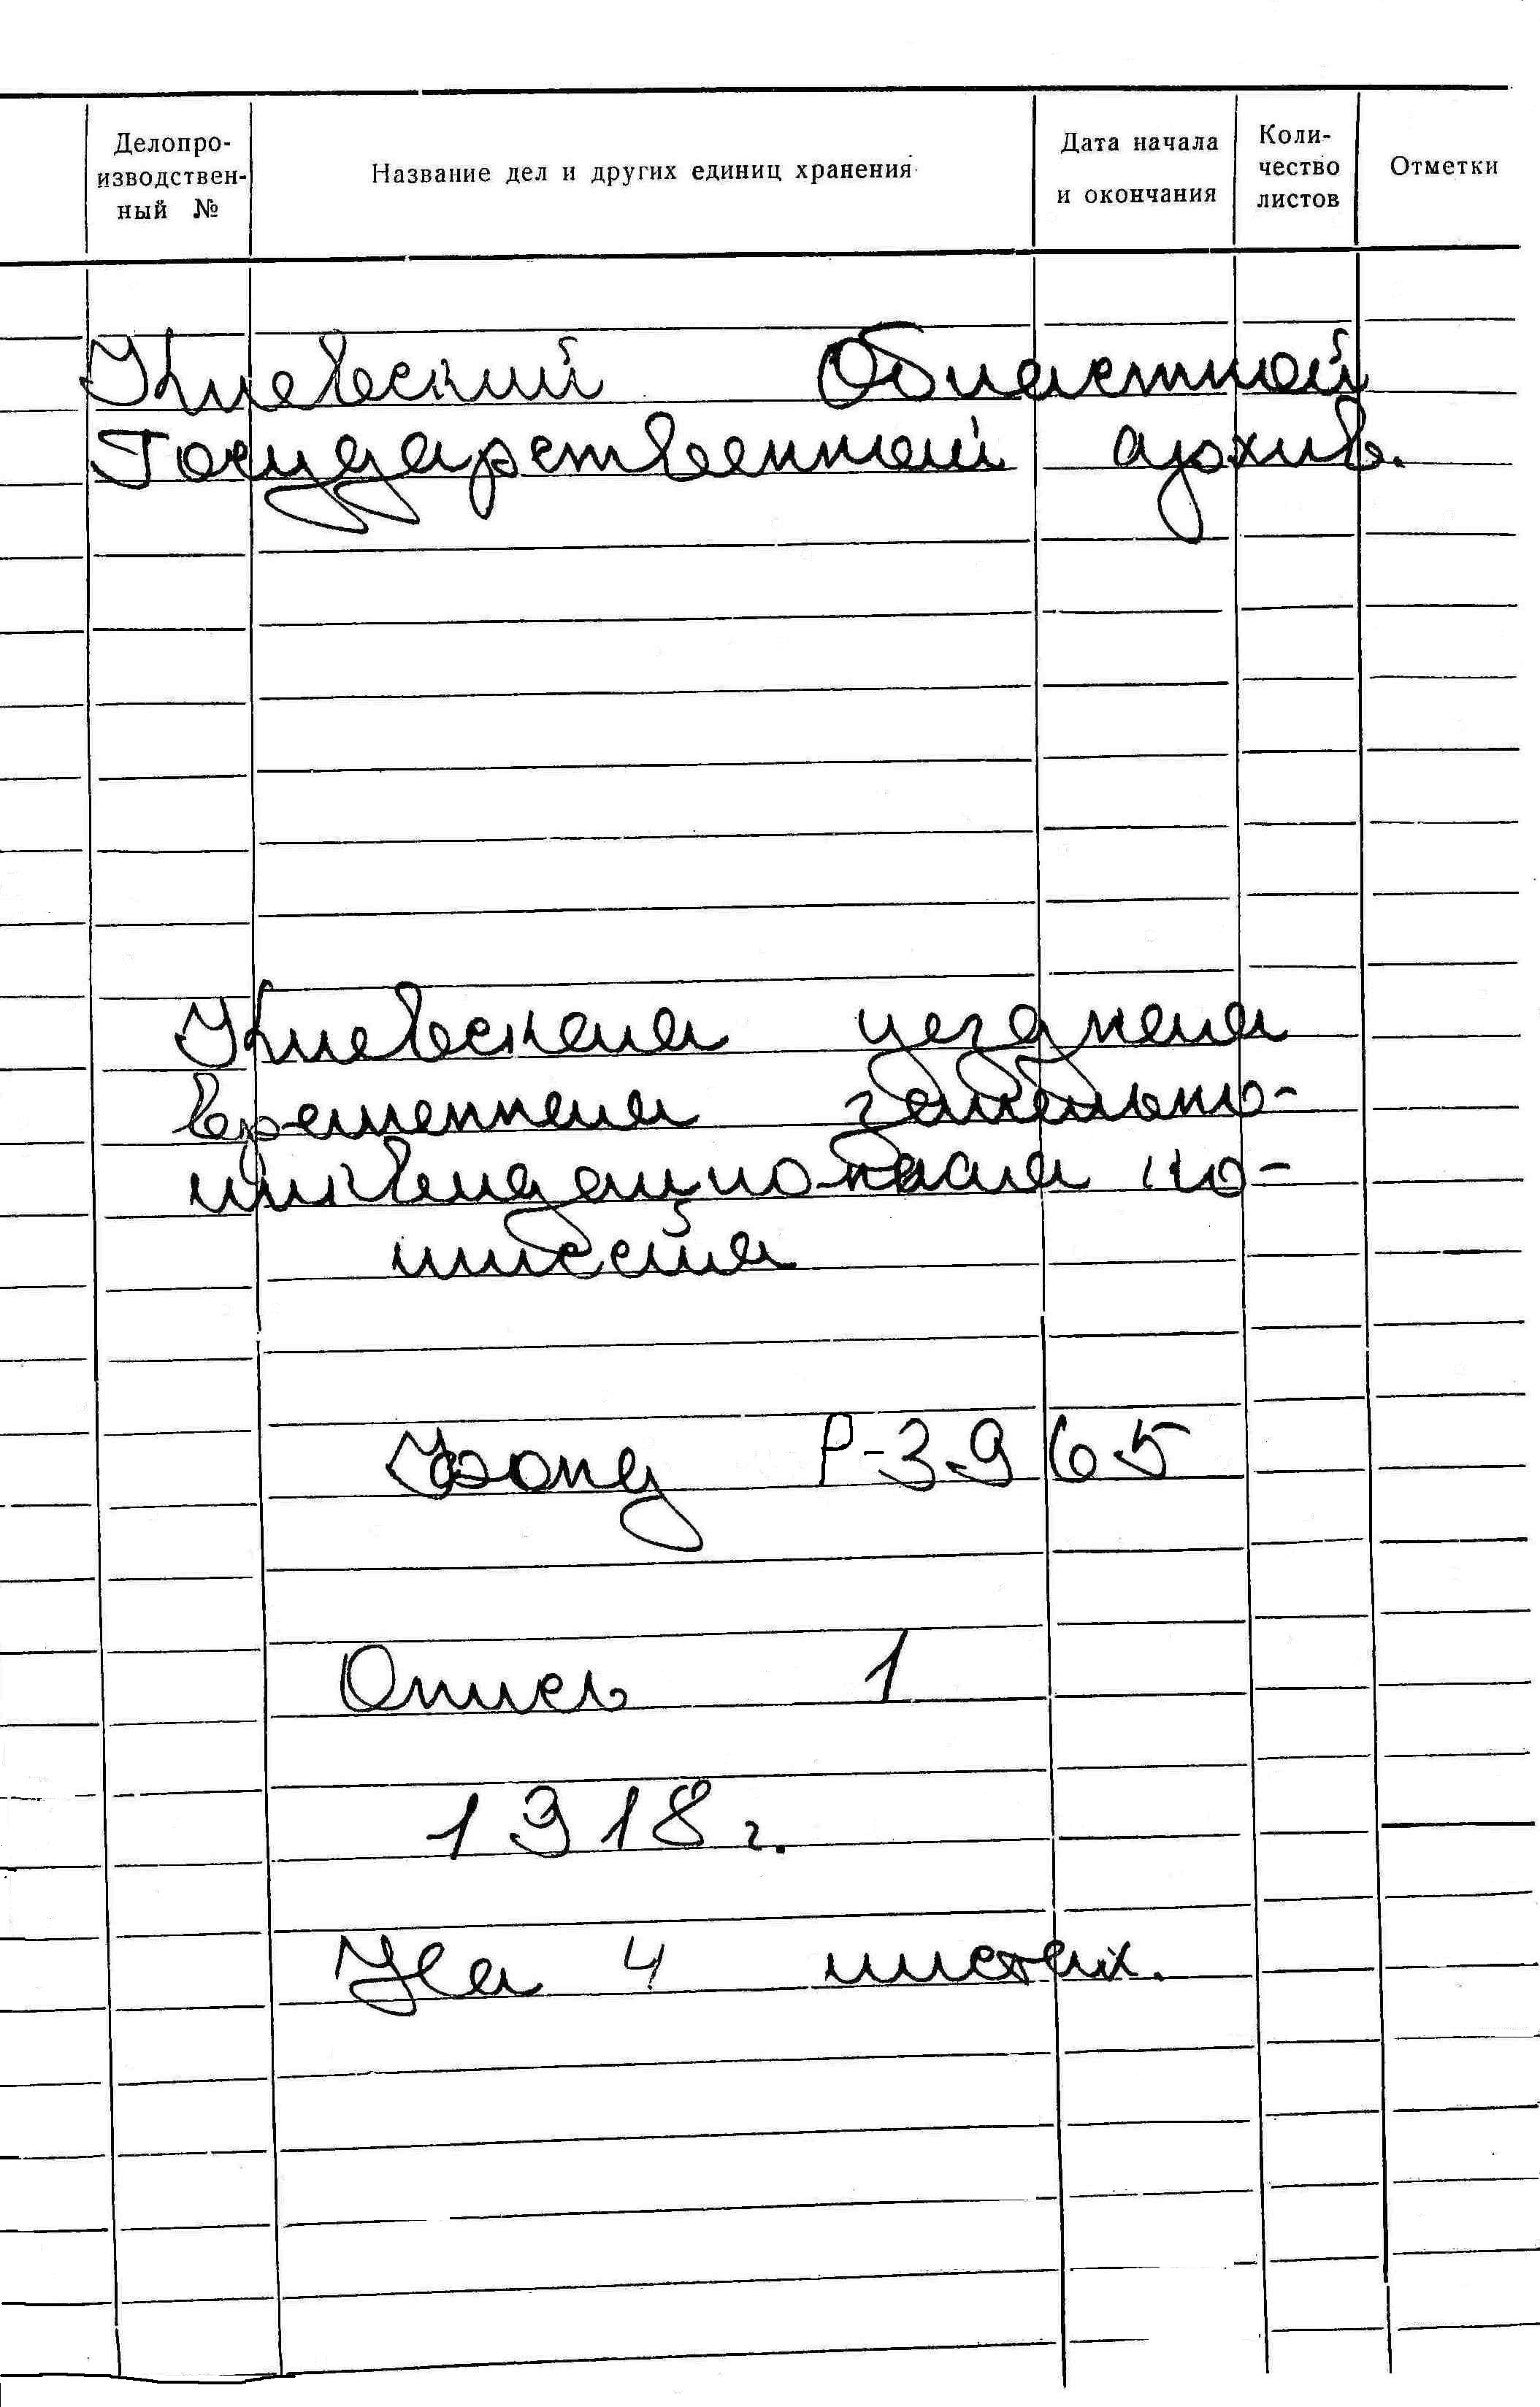 Делопро-
изводствен-
ный №
Название дел и других единиц хранения
Дата начала
и окончания
Коли-
чество
листов
Отметки
Киевский Областной
Государственный архив.
Киевская уездная
временная земельно-
ликвидационная ко-
миссия
Фонд Р-3965
Опись 1
1918 г.
На 4 листах.